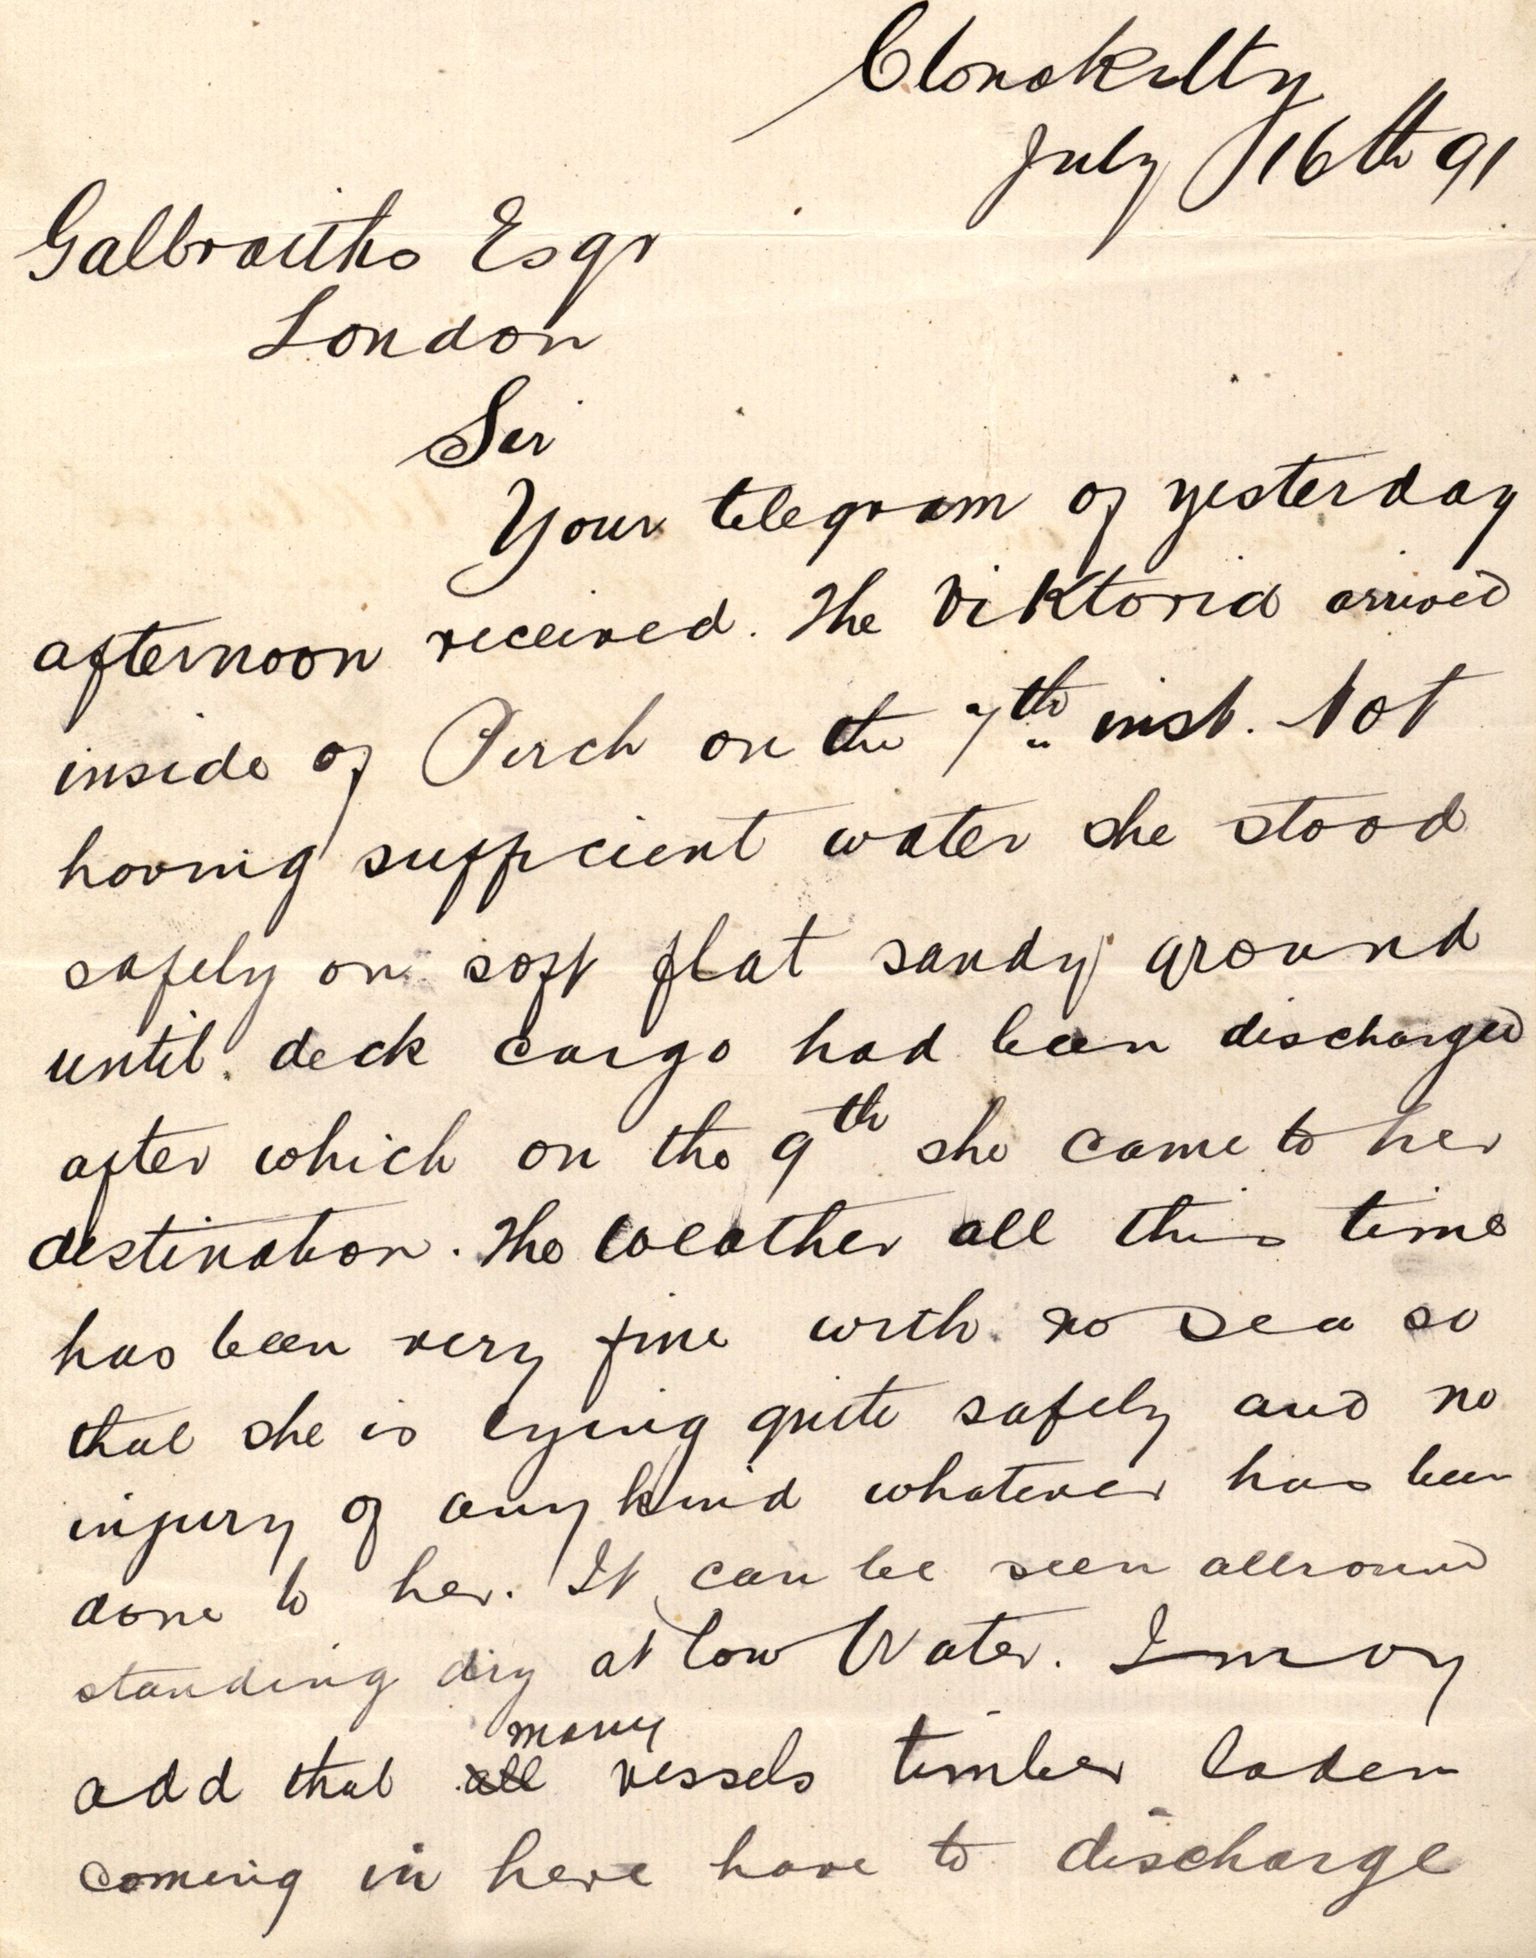 Clonakilty
July 16th 91
Galbraiths Esqr
London
Sir
Your telegram of yesterday
afternoon received. The Viktoria arrived
inside of Perch on the 7th inst. Not
having sufficient water she stood
safely on soft flat sandy ground
until deck cargo had been discharged
after which on the 9th she came to her
destination. The weather all this time
has been very fine with no sea so
that she is lying quite safely and no
injury of any kind whatever has been
done to her. It can be seen allround
standing dry at low Water. I may
add that all many vessels timber laden
coming in here have to discharge